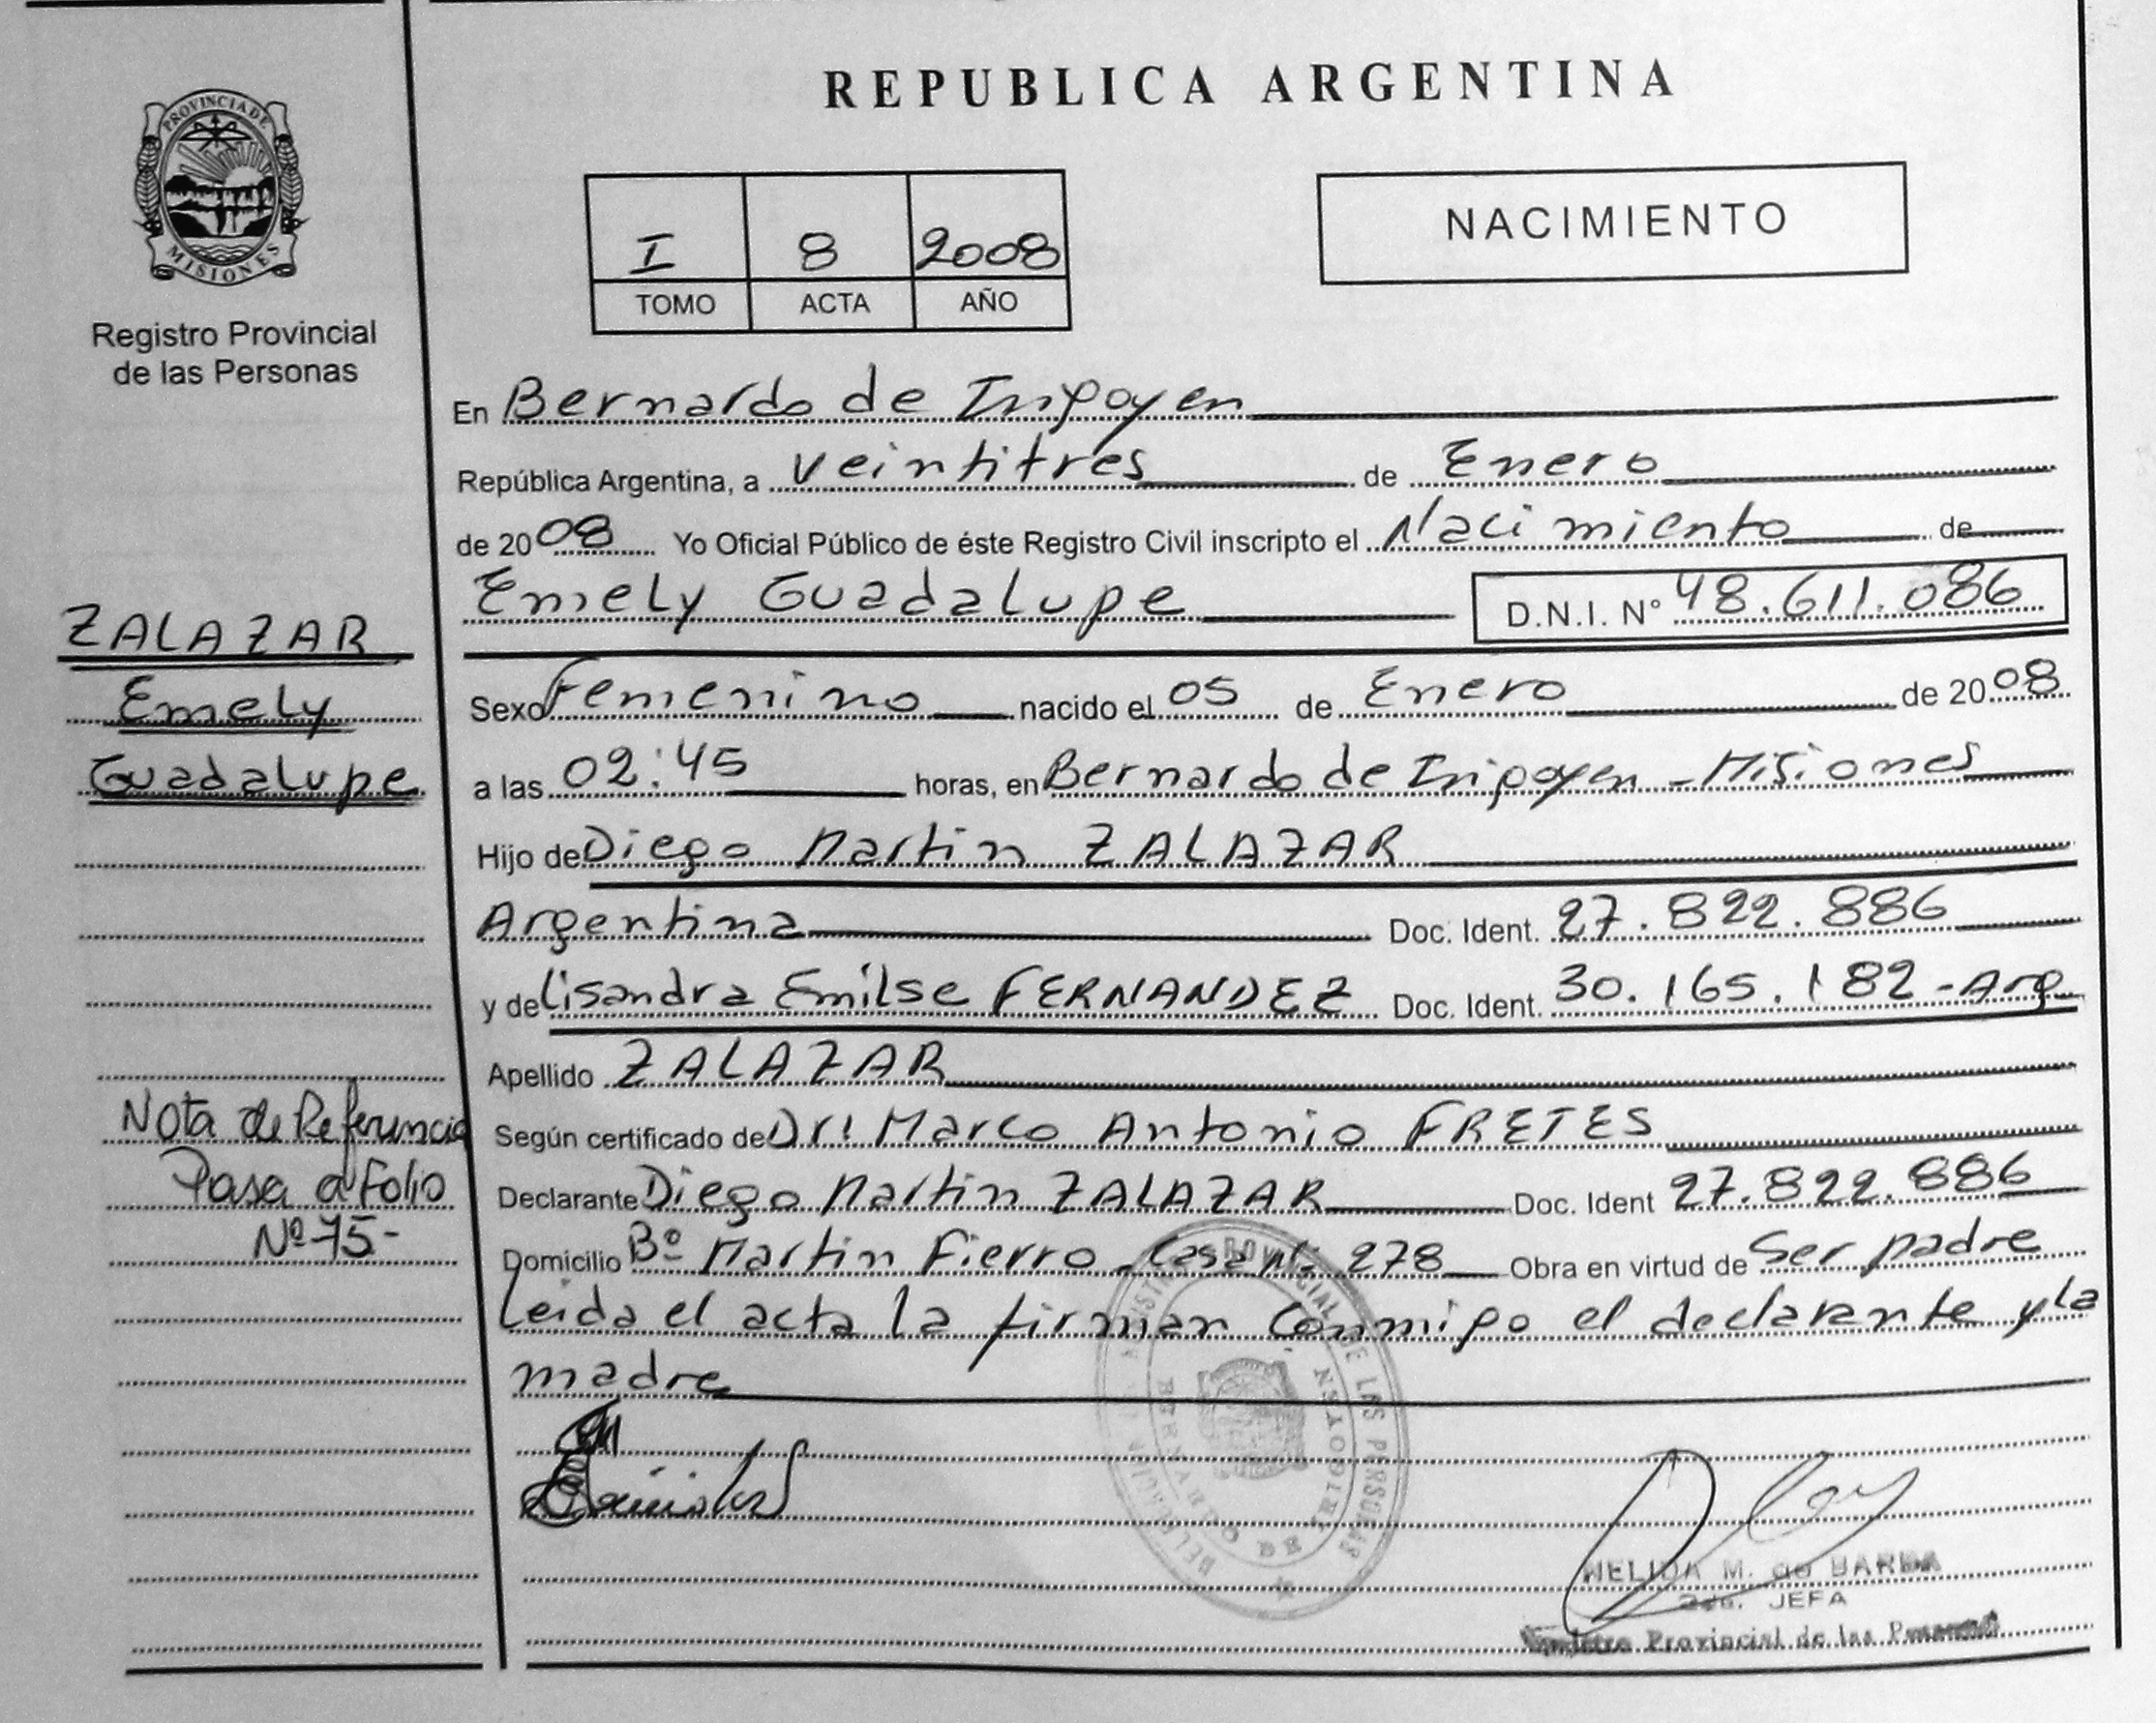 REPUBLICA ARGENTINA
PROVINCIA DE
MISIONES
Registro Provincial
de las Personas
I 8 2008
TOMO ACTA AÑO
NACIMIENTO
En Bernardo de Irigoyen
República Argentina, a veintitres de Enero
de 2008 Yo Oficial Público de éste Registro Civil inscripto el Nacimiento de
Emely Guadalupe D.N.I. N° 48.611.086
ZALAZAR
Emely
Guadalupe
Sexo Femenino nacido el 05 de Enero de 2008
a las 02:45 horas, en Bernardo de Irigoyen - Misiones
Hijo de Diego Martin ZALAZAR
Argentina Doc. Ident. 27.822.886
y de Lisandra Emilse FERNANDEZ Doc. Ident. 30.165.182 - Arg
Apellido ZALAZAR
Nota de Referencia
Pasa a Folio
Nº 75-
Según certificado de Dr: Marco Antonio FRETES
Declarante Diego Martin ZALAZAR Doc. Ident 27.822.886
Domicilio Bº Martin Fierro - Casa Nº 278 Obra en virtud de Ser padre
Leida el acta la firman Conmigo el declarante y la
madre
PROVINCIAL DE LAS PERSONAS
BERNARDO DE IRIGOYEN
NELIDA M. de BARBA
JEFA
Registro Provincial de las Personas